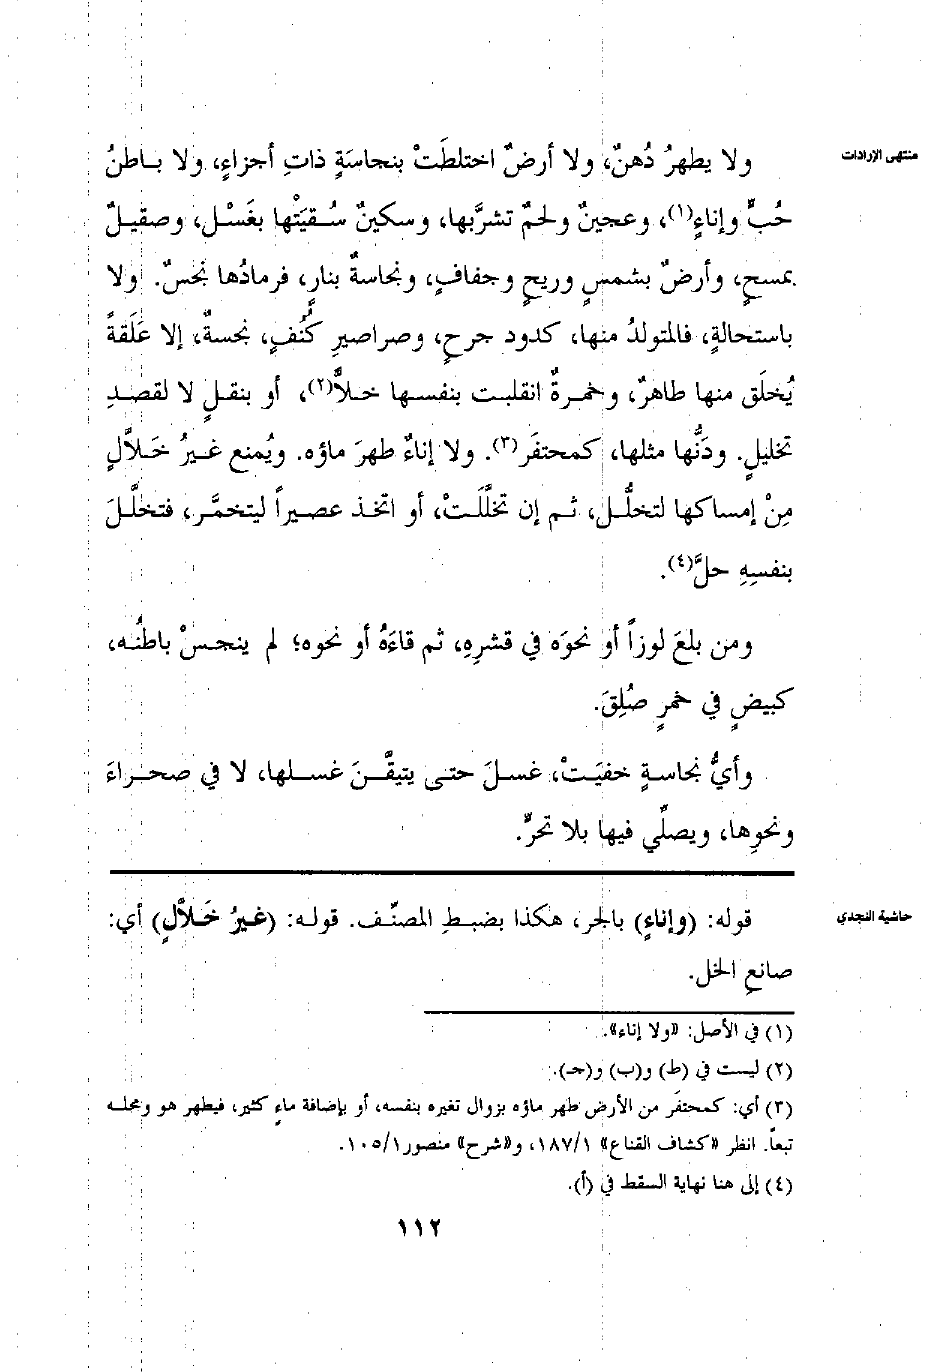 منتهى الإرادات
ولا يطهرُ دُهنٌ، ولا أرضٌ اختلطَتْ بنجاسَةٍ ذاتِ أجزاءٍ، ولا بـاطنُ
حُبٍّ وإناءٍ(١)، وعجينٌ ولحمٌ تشرَّبها، وسكينٌ سُـقيَتْها بغَسْـلٍ، وصقيـلٌ
بمسحٍ، وأرضٌ بشمسٍ وريحٍ وجفافٍ، ونجاسةٌ بنارٍ، فرمادُها نجسٌ. ولا
باستحالةٍ، فالمتولدُ منها، كدود جرحٍ، وصراصيرِ كُنُفٍ، نجسةٌ، إلا عَلَقةً
يُخلَق منها طاهرٌ، وخمـرةٌ انقلبـت بنفسـها خـلاًّ(٢)، أو بنقـلٍ لا لقصـدِ
تخليلٍ. ودَنُّها مثلها، كمحتفَر(٣). ولا إناءٌ طهرَ ماؤه. ويُمنع غـيرُ خَـلاَّلٍ
مِنْ إمساكها لتخلُّـل، ثـم إن تخلَّلَـتْ، أو اتخـذ عصيـراً ليتخمَّـر، فتخلَّـلَ
بنفسِهِ حلَّ(٤).
ومن بلعَ لوزاً أو نحوَه في قشرِهِ، ثم قاءَهُ أو نحوه؛ لم ينجـسْ باطنُـه،
كبيضٍ في خمرٍ صُلِقَ.
وأيُّ نجاسـةٍ خفيَـتْ، غسـلَ حتـى يتيقَّـنَ غسـلها، لا في صحـراءَ
ونحوِها، ويصلِّي فيها بلا تحرٍّ.
حاشية النجدي
قوله: (وإناءٍ) بالجر، هكذا بضبـطِ المصنِّـف. قولـه: (غـيرُ خَـلاَّلٍ) أي:
صانعِ الخل.
(١) في الأصل: «ولا إناء».
(٢) ليست في (ط) و(ب) و(جـ).
(٣) أي: كمحتفَر من الأرض طهر ماؤه بزوال تغيره بنفسه، أو بإضافة ماءٍ كثير، فيطهر هو ومحلـه
تبعاً. انظر «كشاف القناع» ١٨٧/١، و«شرح» منصور ١٠٥/١.
(٤) إلى هنا نهاية السقط في (أ).
١١٢